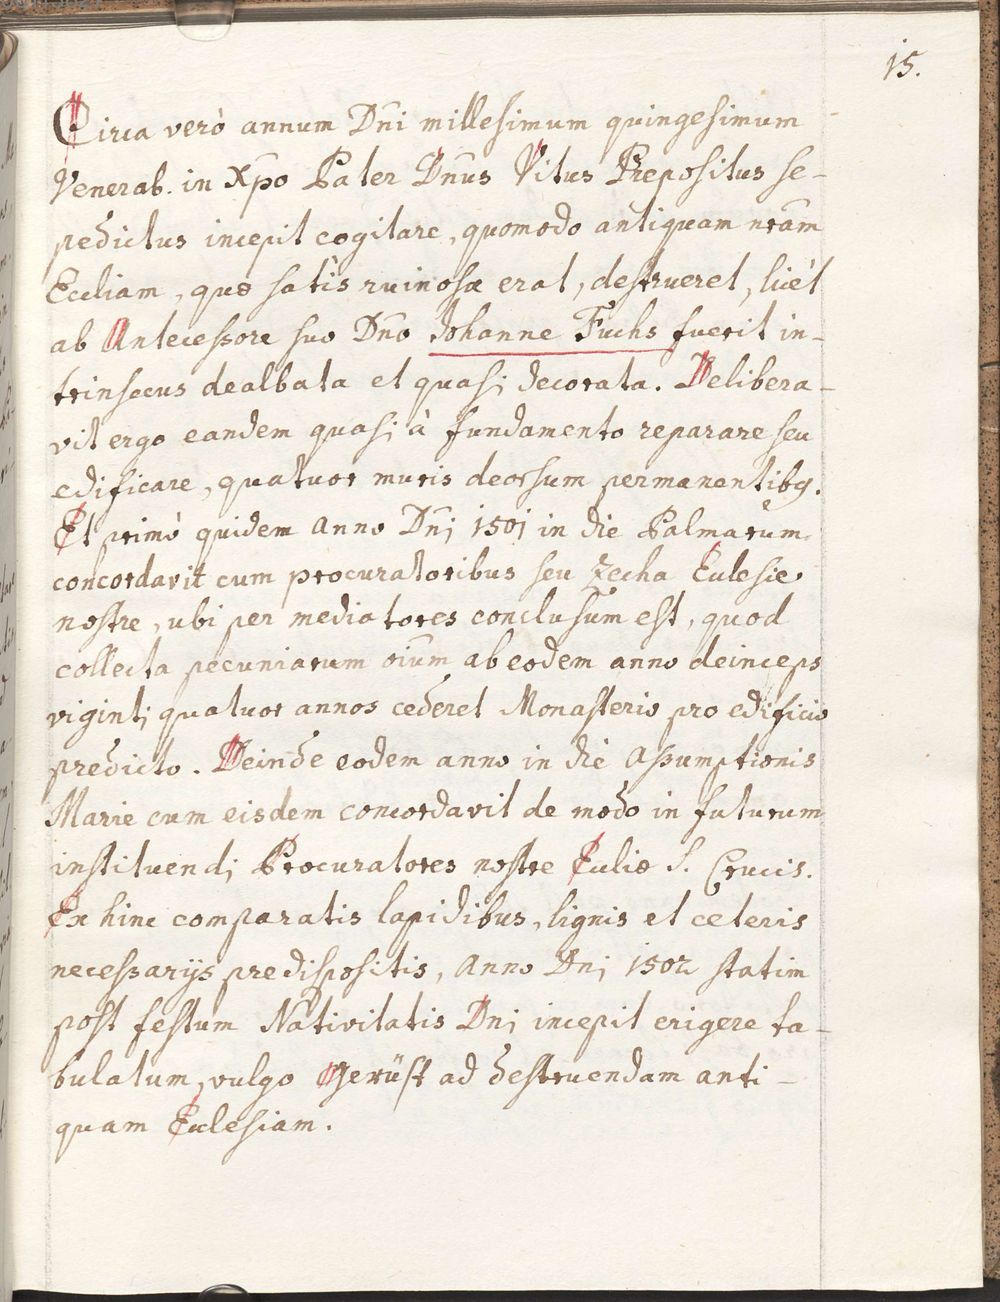 15.
Circa verò annum Dn̄i millesimum quingesimum
Venerab. in Xp̄o Pater Dn̄us Vitus Prepositus se-
pedictus incepit cogitare, quomodo antiquam nr̄am
Eccl̄iam, que satis ruinosa erat, destrueret, licèt
ab Antecessore suo Dn̄o Johanne Fuchs fuerit in-
trinsecus dealbata et quasi decorata. Delibera-
vit ergo eandem quasi à fundamento reparare seu
edificare, quatuor muris deorsum permanentibq.
Et primò quidem anno Dn̄i 1501 in die Palmarum
concordavit cum procuratoribus seu Zecha Eclesie
nostre, ubi per mediatores conclusum est, quod
collecta pecuniarum oīum ab eodem anno deinceps
viginti quatuor annos cederet Monasterio pro edificio
predicto. Deinde eodem anno in die Assumptionis
Marie cum eisdem concordavit de modo in futurum
instituendi Procuratores nostre Eccl̄ie S. Crucis.
Ex hinc comparatis lapidibus, lignis et ceteris
necessarijs predispositis, anno Dn̄i 1502 statim
post festum Nativitatis Dn̄i incepit erigere ta-
bulatum, vulgo Gerüst ad destruendam anti-
quam Eclesiam.